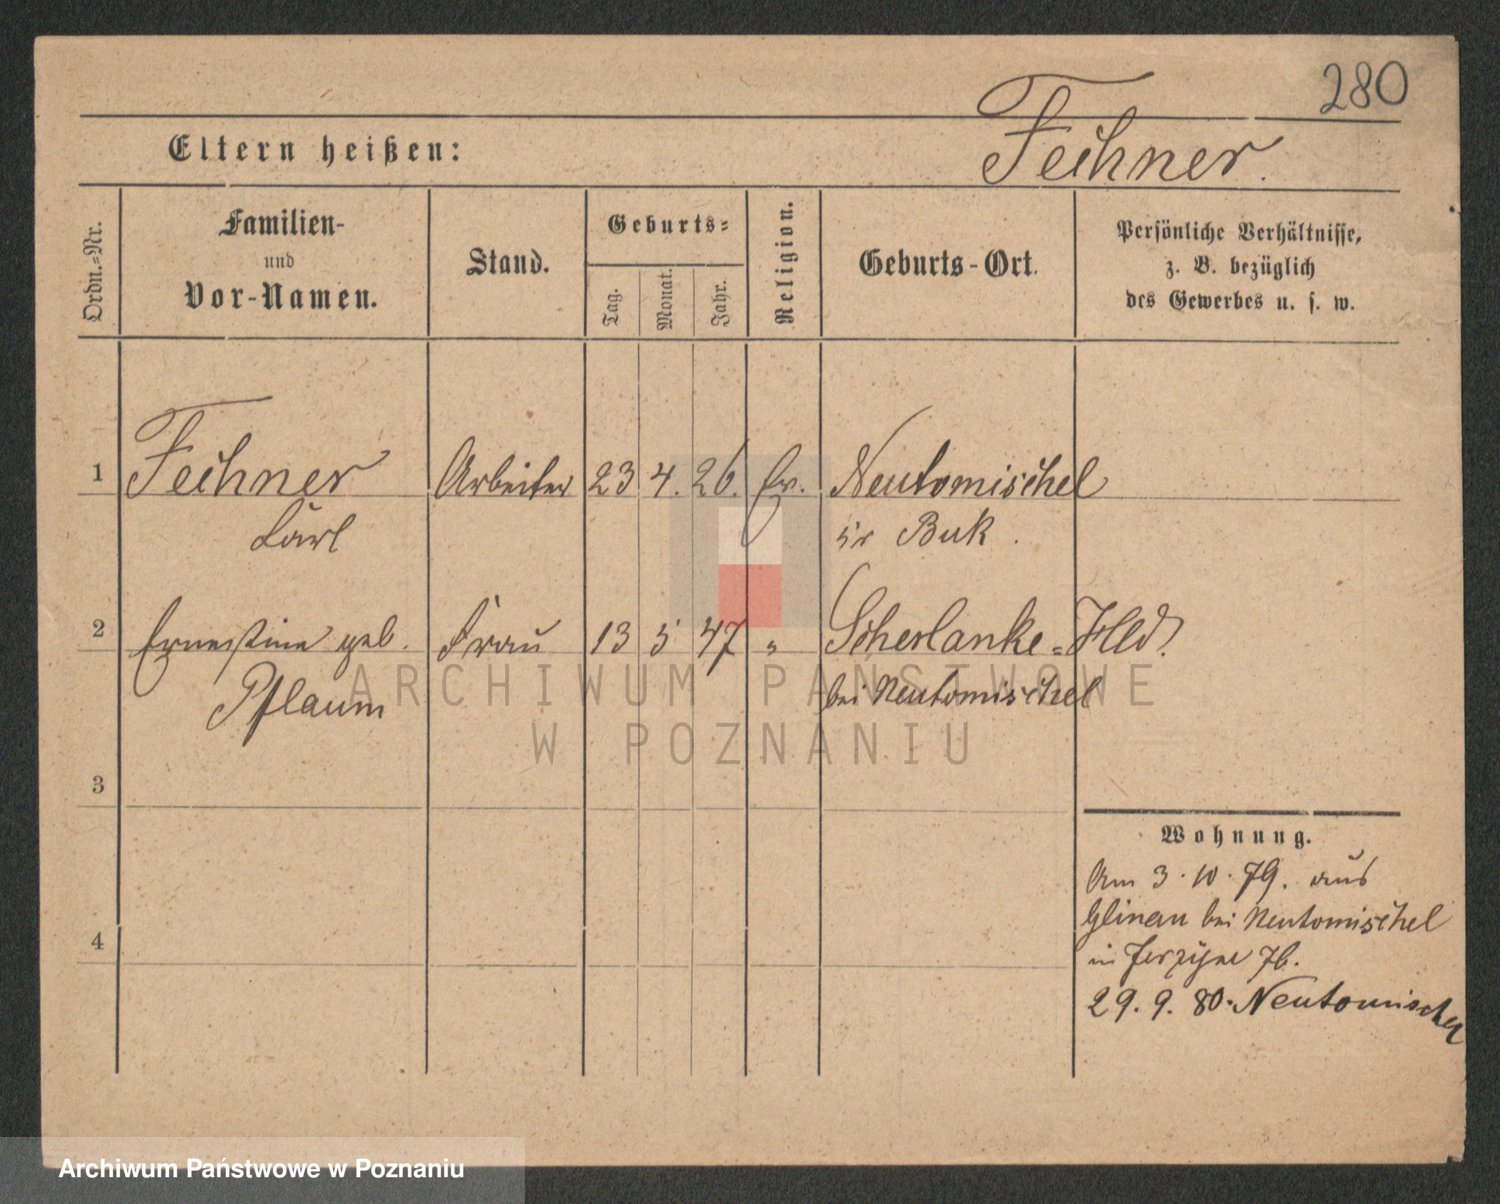 280
Eltern heißen: Fechner.
Ordn.=Nr.
Familien-
und
Vor-Namen.
Stand.
Geburts=
Tag.
Monat.
Jahr.
Religion.
Geburts-Ort.
Persönliche Verhältnisse,
z. B. bezüglich
des Gewerbes u. s. w.
1 Fechner Arbeiter 23 4. 26. Ev. Neutomischel
Carl Kr Buk.
2 Ernestine geb. Frau 13 5 47 " Scherlanke=Hld.
Pflaum bei Neutomischel
3
4
Wohnung.
Am 3.10.79. aus
Glinau bei Neutomischel
in Jerzyce 76.
29.9.80. Neutomischel
ARCHIWUM PAŃSTWOWE
W POZNANIU
Archiwum Państwowe w Poznaniu